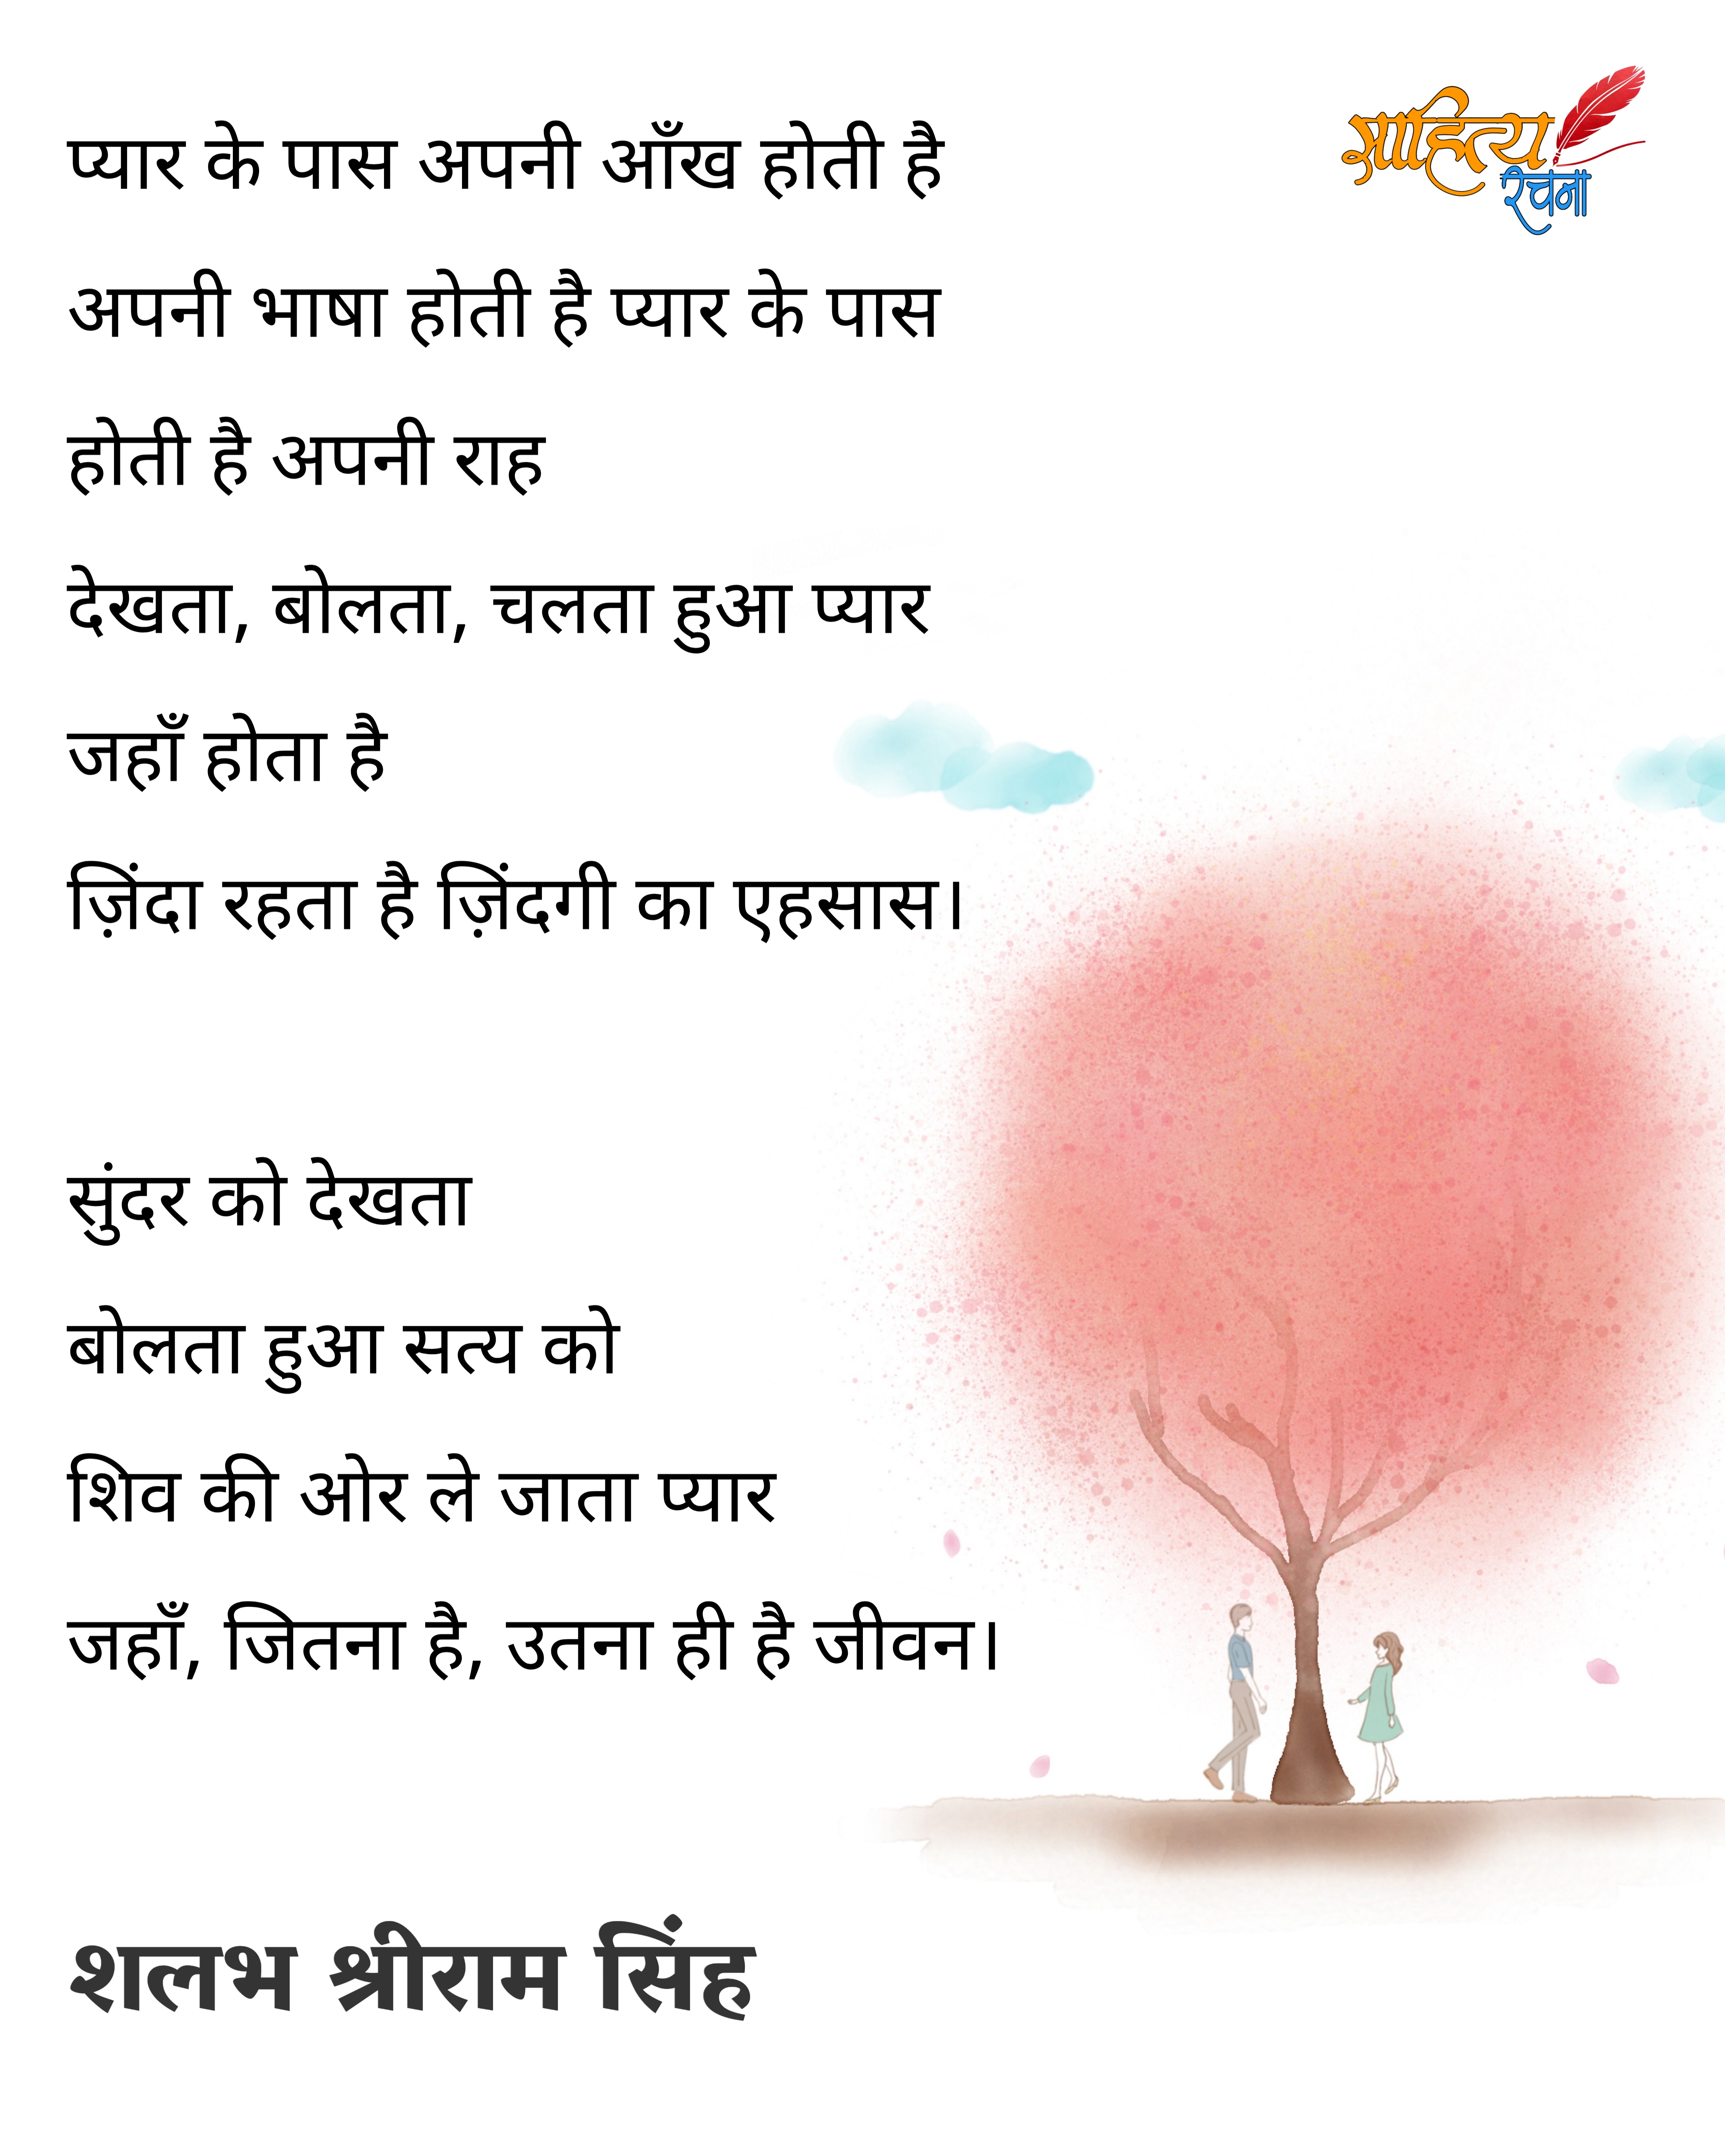 साहित्य
रचना
प्यार के पास अपनी आँख होती है
अपनी भाषा होती है प्यार के पास
होती है अपनी राह
देखता, बोलता, चलता हुआ प्यार
जहाँ होता है
ज़िंदा रहता है ज़िंदगी का एहसास।
सुंदर को देखता
बोलता हुआ सत्य को
शिव की ओर ले जाता प्यार
जहाँ, जितना है, उतना ही है जीवन।
शलभ श्रीराम सिंह